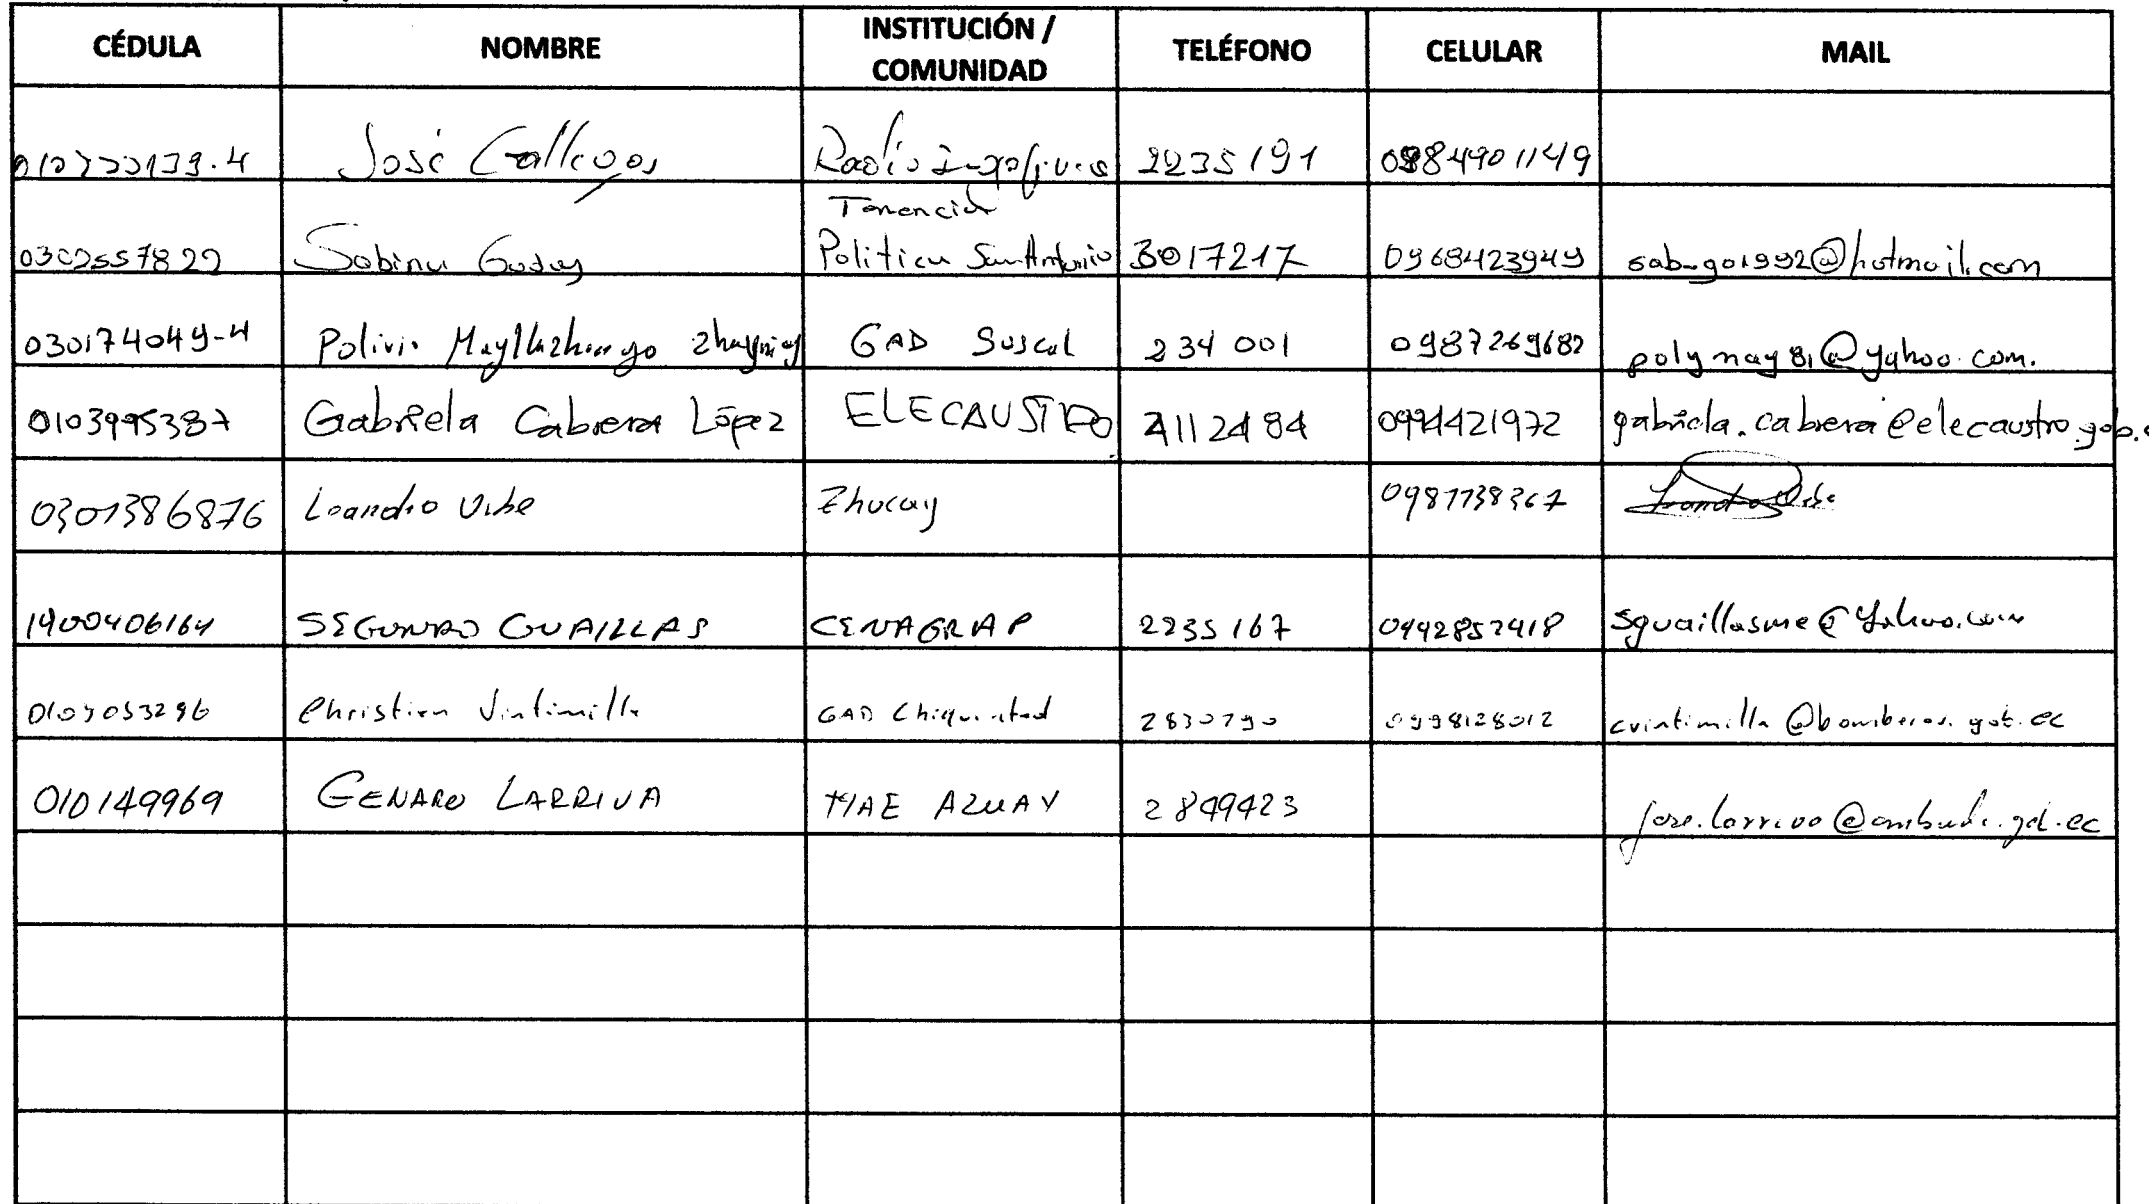 CÉDULA NOMBRE INSTITUCIÓN / COMUNIDAD TELÉFONO CELULAR MAIL
José Gallegos Radio 2235191 0984901149
Tenencia
Sabina Godoy Politica San Antonio 3017217 0968423949 sab-go1992@hotmail.com
030174049-4 Polivio GAD Suscal 234 001 0987269682 polymay81@yahoo.com.
0103995387 Gabriela Cabrera López ELECAUSTRO 4112484 0994421972 gabriela.cabrera@elecaustro.gob.
0301386876 Leandro Uribe Zhucay 0987738367
1900406164 SEGUNDO GUAILLAS CENAGRAP 2235167 0992852418 sguaillasme@Yahoo.com
Christian Vintimilla GAD 2830790 0998128012 cvintimilla@bomberos.gob.ec
010149969 GENARO LARRIVA MAE AZUAY 2849423